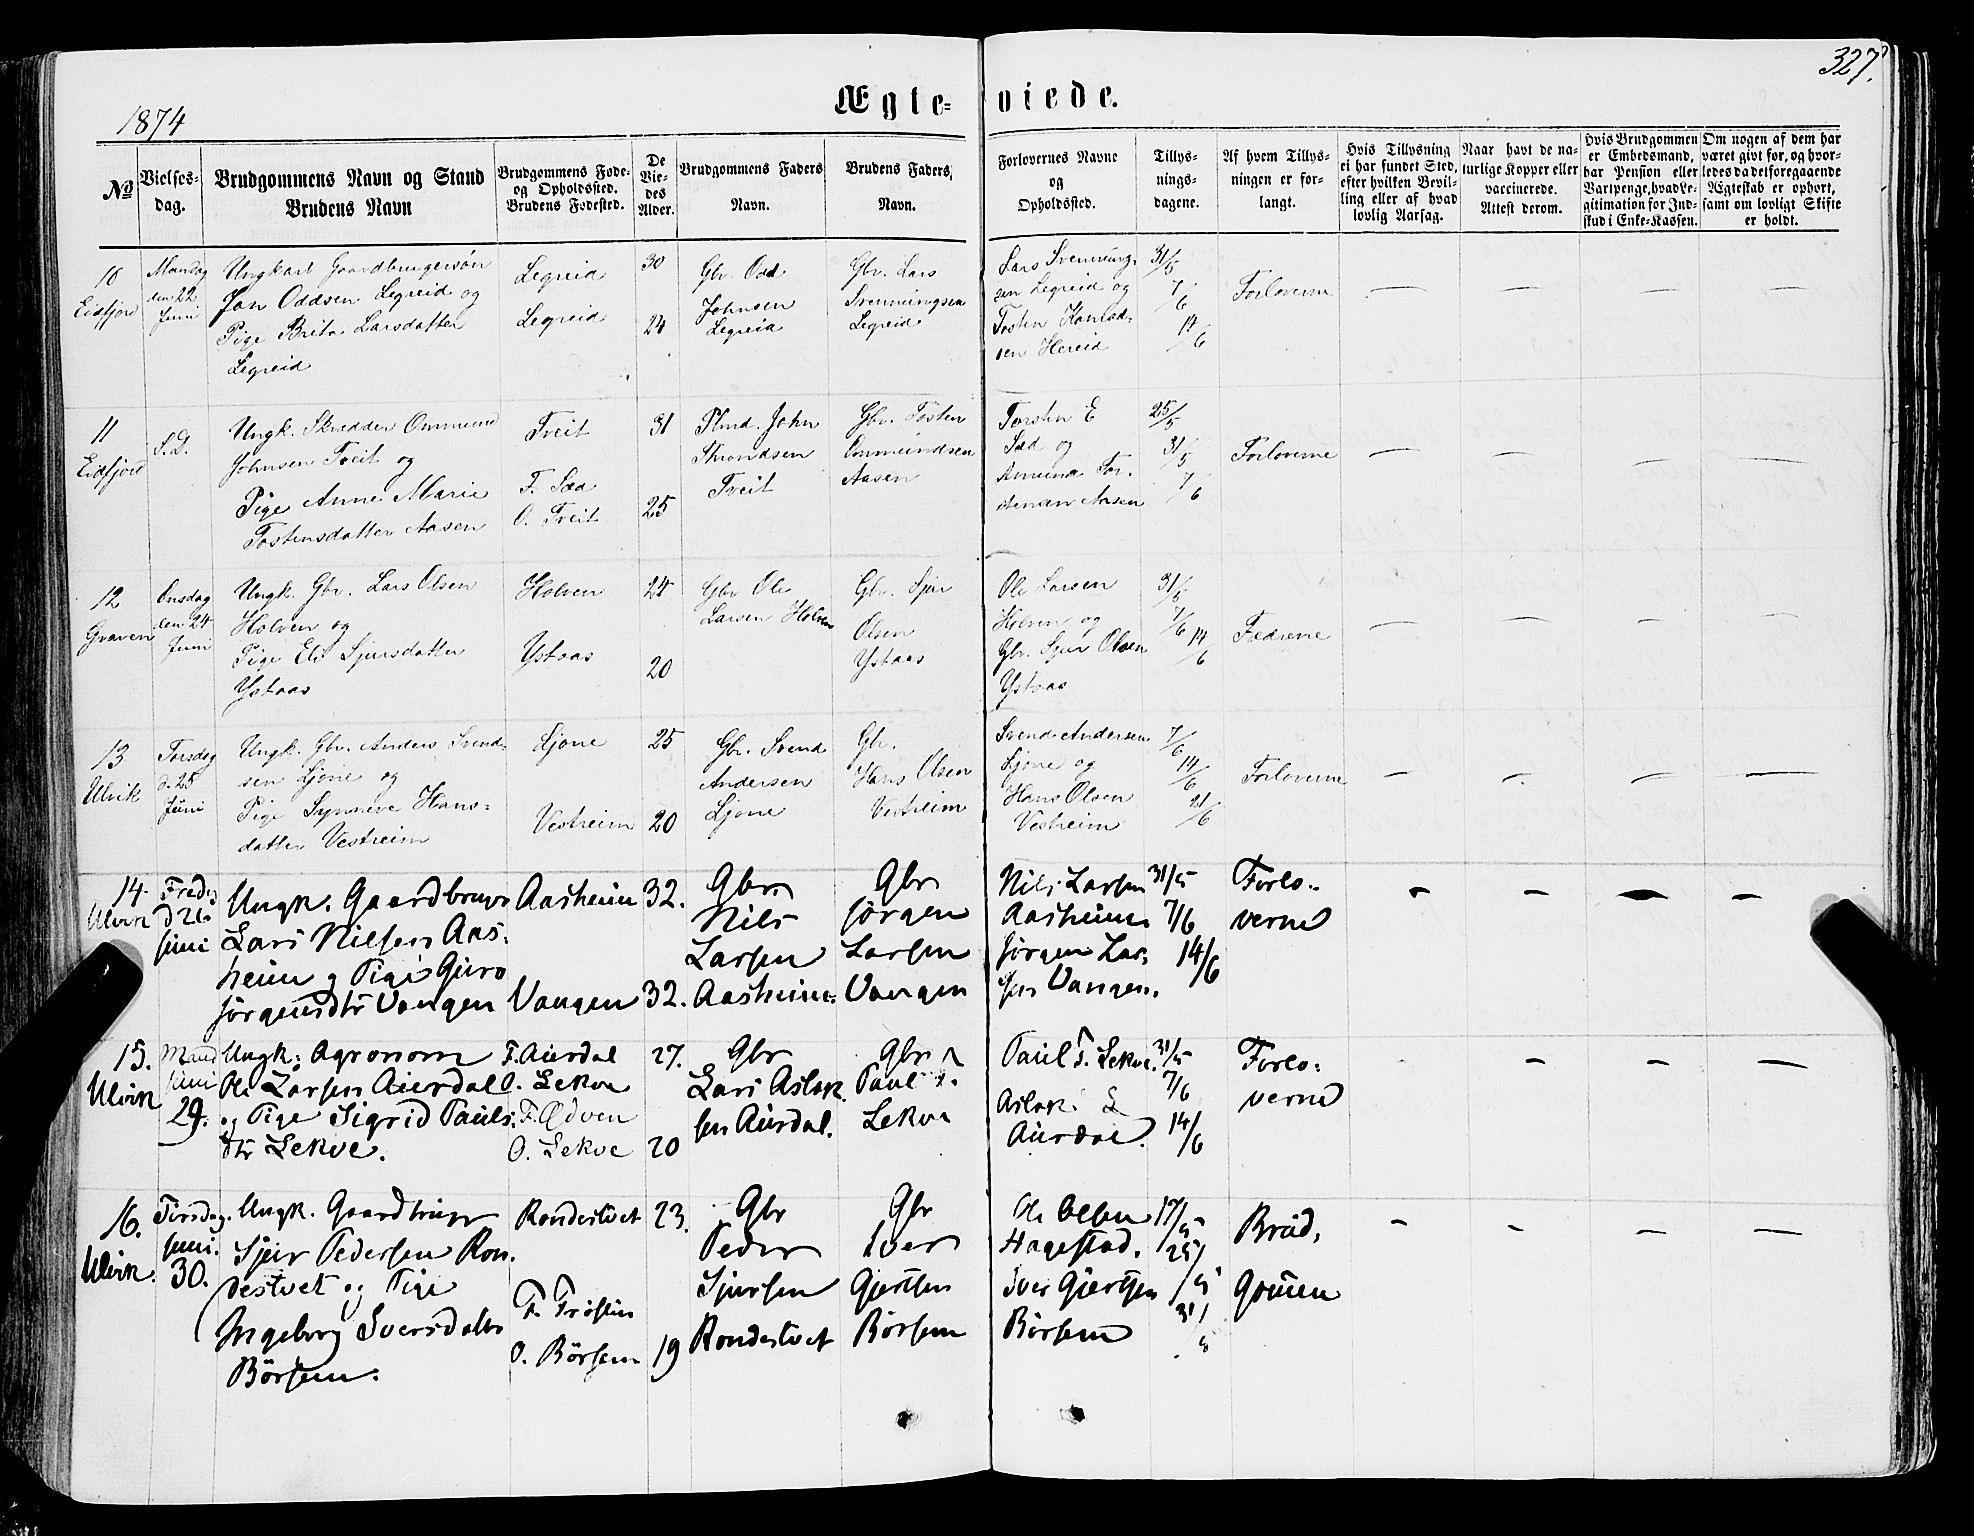 327.
Ægte-viede.
1874
No
Vielses-
dag.
Brudgommens Navn og Stand
Brudens Navn
Brudgommens Føde-
og Opholdssted.
Brudens Fødested.
De
Vie-
des
Alder.
Brudgommens Faders
Navn.
Brudens Faders,
Navn.
Forlovernes Navne
og
Opholdssted.
Tillys-
nings-
dagene.
Af hvem Tillys-
ningen er for-
langt.
Hvis Tillysning
ei har fundet Sted,
efter hvilken Bevil-
ling eller af hvad
lovlig Aarsag.
Naar havt de na-
turlige Kopper eller
vaccinerede.
Attest derom.
Hvis Brudgommen
er Embedsmand,
har Pension eller
Vartpenge, hvad Le-
gitimation for Ind-
skud i Enke-Kassen.
Om nogen af dem har
været givt før, og hvor-
ledes da det foregaaende
Ægteskab er ophørt,
samt om lovligt Skifte
er holdt.
10
Eidfjord
Mandag
den 22
Juni
Ungkarl Gaardbrugersøn
Jon Oddsen Legreid og
Pige Brita Larsdatter
Legreid
Legreid
Legreid
30
24
Gbr. Odd
Johnsen
Legreid
Gbr. Lars
Svenningsen
Legreid
Lars Svenning-
sen Legreid og
Tosten Konrad-
sen Hereid
31/5
7/6
14/6
Forloverne
— — — —
11
Eidfjord
S.D.
Ungk. Skrædder Ommund
Johnsen Tveit og
Pige Anne Marie
Tostensdatter Aasen
Tveit
F. Sæd
O. Tveit
31
25
Plmd. John
Throndsen
Tveit
Gbr. Tosten
Ommundsen
Aasen
Torsten E
Sæd og
Amund Tor-
stensen Aasen
25/5
31/5
7/6
Forloverne
— — — —
12
Graven
Onsdag
den 24
Juni
Ungk. Gbr. Lars Olsen
Holven og
Pige Eli Sjursdatter
Ystaas
Holven
Ystaas
24
20
Gbr Ole
Larsen Holven
Gbr. Sjur
Olsen
Ystaas
Ole Larsen
Holven og
Gbr. Sjur Olsen
Ystaas
31/5
7/6
14/6
Fædrene
— — — —
13
Ulvik
Torsdag
d. 25
Juni
Ungk. Gbr. Anders Svend-
sen Ljone og
Pige Synneve Hans-
datter Vestreim
Ljone
Vestreim
25
20
Gbr. Svend
Andersen
Ljone
Gbr.
Hans Olsen
Vestreim
Svend Andersen
Ljone og
Hans Olsen
Vestreim
7/6
14/6
21/6
Forloverne
— — — —
14
Ulvik
Fredag
d 26
Juni
Ungk. Gaardbrugr
Lars Nilsen Aas-
heim og Pige Guro
Jørgensdtr Vangen
Aasheim
Vangen
32.
32.
Gbr
Nils
Larsen
Aasheim
Gbr
Jørgen
Larsen
Vangen
Nils Larsen
Aasheim
Jørgen Lar-
sen Vangen.
31/5
7/6
14/6
Forlo-
verne
— — — —
15.
Ulvik
Mand
Juni
29.
Ungk: Agronom
Ole Larsen Aurdal
og Pige Sigrid Pauls-
dtr Lekve.
F. Aurdal
O. Lekve
F. Odven
O. Lekve
27.
20
Gbr
Lars Aslak
sen Aurdal.
Gbr
Paul T.
Lekve
Paul T. Lekve.
Aslak L
Aurdal.
31/5
7/6
14/6
Forlo-
verne
— — —
16.
Ulvik.
Tirsdag.
Juni.
30.
Ungk. Gaardbrugr
Sjur Pedersen Ron-
destvet og Pige
Ingeborg Iversdatter
Børsem.
Rondestvet
O. Børsem
23.
19
Gbr
Peder
Sjursen
Rondestvet
Gbr
Iver
Gjertsen
Børsem
Ole Olsen
Hagestad.
Iver Gjertsen
Børsem
17/5
25/5
31/5
Brud,
Gommen
— — — —